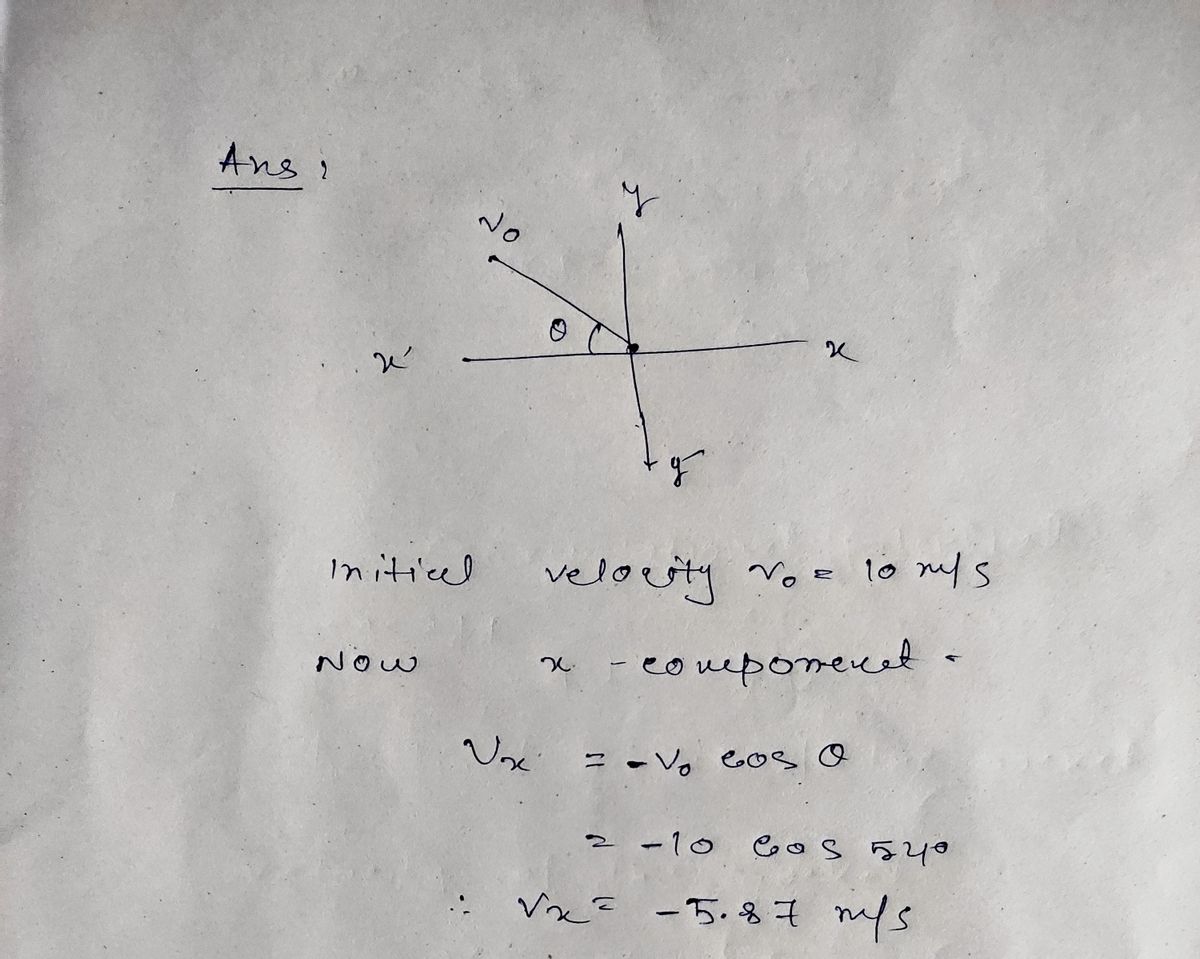 Ans :
y
v₀
θ
x'
x
y'
Initial velocity v₀ = 10 m/s
Now x - component -
Vx = - V₀ cos θ
= -10 cos 54°
∴ Vx = -5.87 m/s